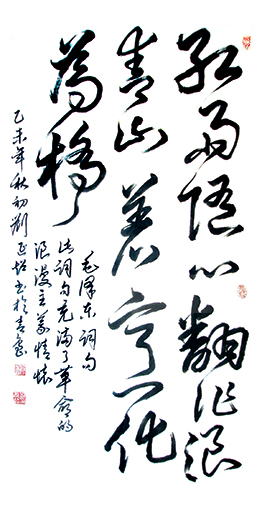 红雨随心翻作浪
青山着意化
為橋
毛泽东词句
此词句充满了革命的
浪漫主义情怀
乙未年秋初劉书於青島